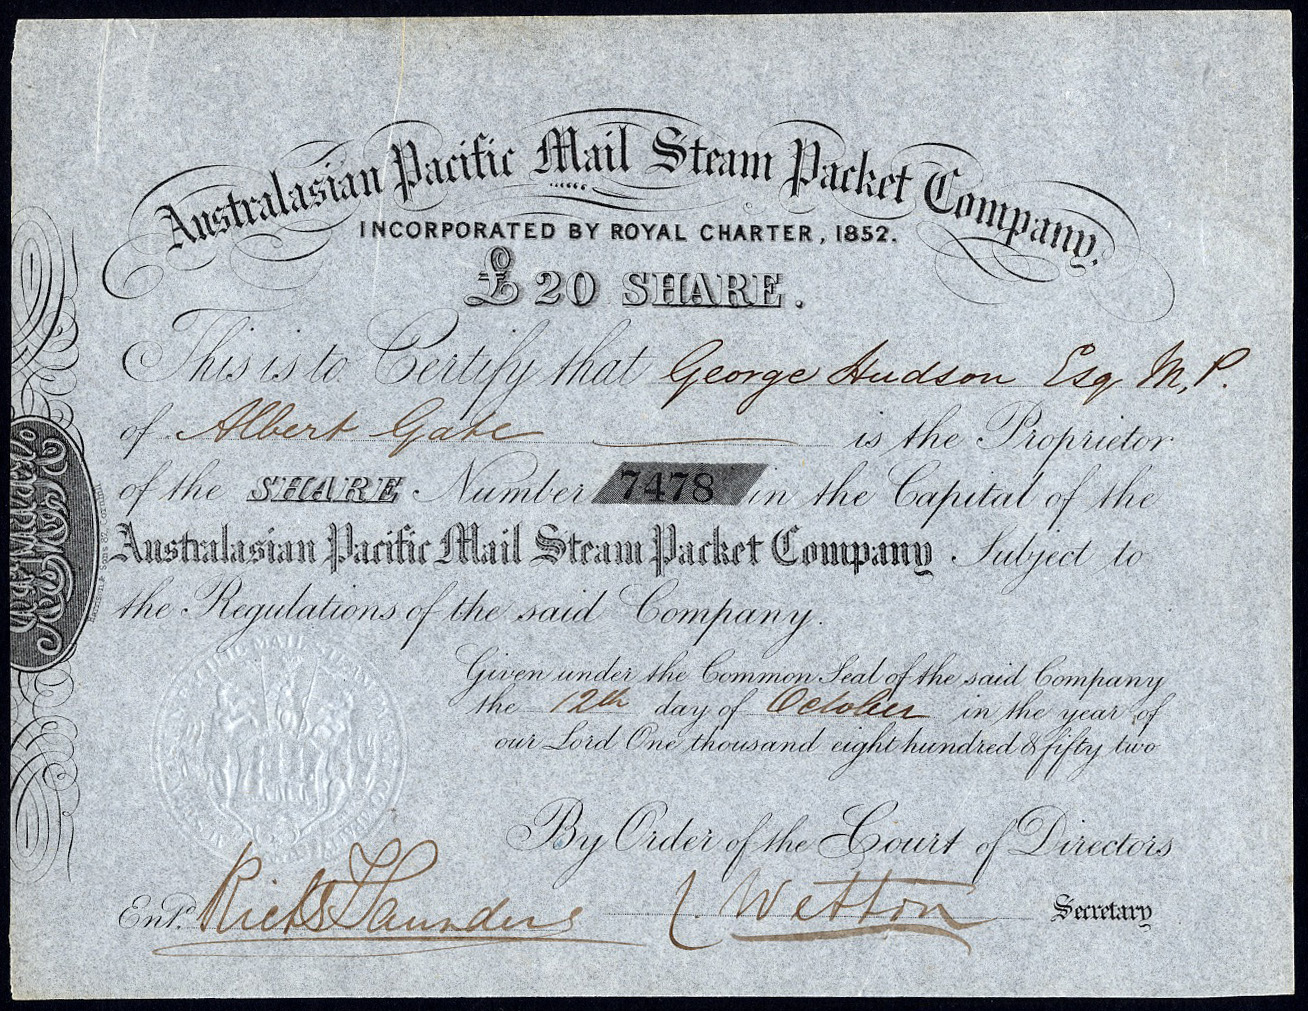 Australasian Pacific Mail Steam Packet Company.
INCORPORATED BY ROYAL CHARTER, 1852.
£20 SHARE.
This is to Certify that George Hudson Esq M.P.
of Albert Gate is the Proprietor
of the SHARE Number 7478 in the Capital of the
Australasian Pacific Mail Steam Packet Company. Subject to
the Regulations of the said Company.
Given under the Common Seal of the said Company
the 12th day of October in the year of
our Lord One thousand eight hundred & fifty two
By Order of the Court of Directors
Entd. Richd Saunders Wetton Secretary